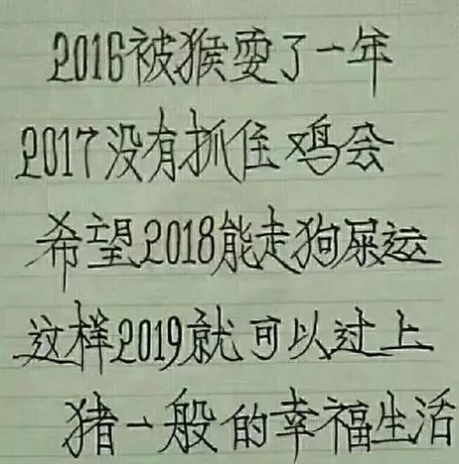 2016被猴耍了一年
2017没有抓住鸡会
希望2018能走狗屎运
这样2019就可以过上
猪一般的幸福生活